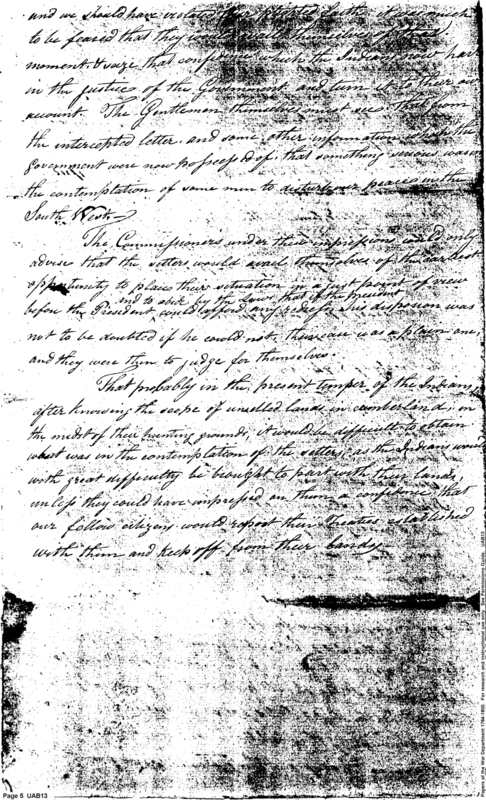 and we should have violated
to be feared that they would avail themselves of that
moment, & seize that confidence which the Indians must have
in the justice of the Government and turn it to their own
account. The Gentlemen themselves must see that from
the intercepted letter, and some other information which the
Government were now possessed of, that something serious was in
the contemplation of some men to disturb our peace in the
South West
The Commissioners under these impressions could only
advise that the setters would avail themselves of the earliest
opportunity to place their situation in a just point of view
and to abide by the Laws, that if the president
before the President, could afford any redress his disposion was
not to be doubted if he could not, their case was a plain one,
and they were then to judge for themselves.
That probably in the present temper of the Indians,
after knowing the scope of unsetled lands in Cumberland, in
the midst of their hunting grounds, it would be difficult to obtain
what was in the contemplation of the setlers, as the Indians would
with great difficultty be brought to part with their lands,
unless they could have impressed on them a confidence that
our fellow citizens would respect their treaties established
with them and keep off from their lands.
Page 5 UAB13